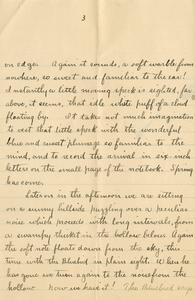 3
on edge. Again it sounds, a soft warble from
nowhere, so sweet and familiar to the ear!
Instantly a little moving speck is sighted, far
above, it seems, that idle white puff of a cloud
floating by. It takes not much imagination
to vest that little speck with the wonderful
blue and sweet plumage so familiar to the
mind, and to record the arrival in six-inch
letters on the small page of the notebook. Spring
has come.
Later in the afternoon we are sitting
on a sunny hillside puzzling over a peculiar
noise which proceeds with long intervals, from
a swampy thicket in the hollow below. Again
the soft note floats down from the sky, this
time with the Bluebird in plain sight. When he
has gone we turn again to the noise from the
hollow. Now we have it! The Bluebird